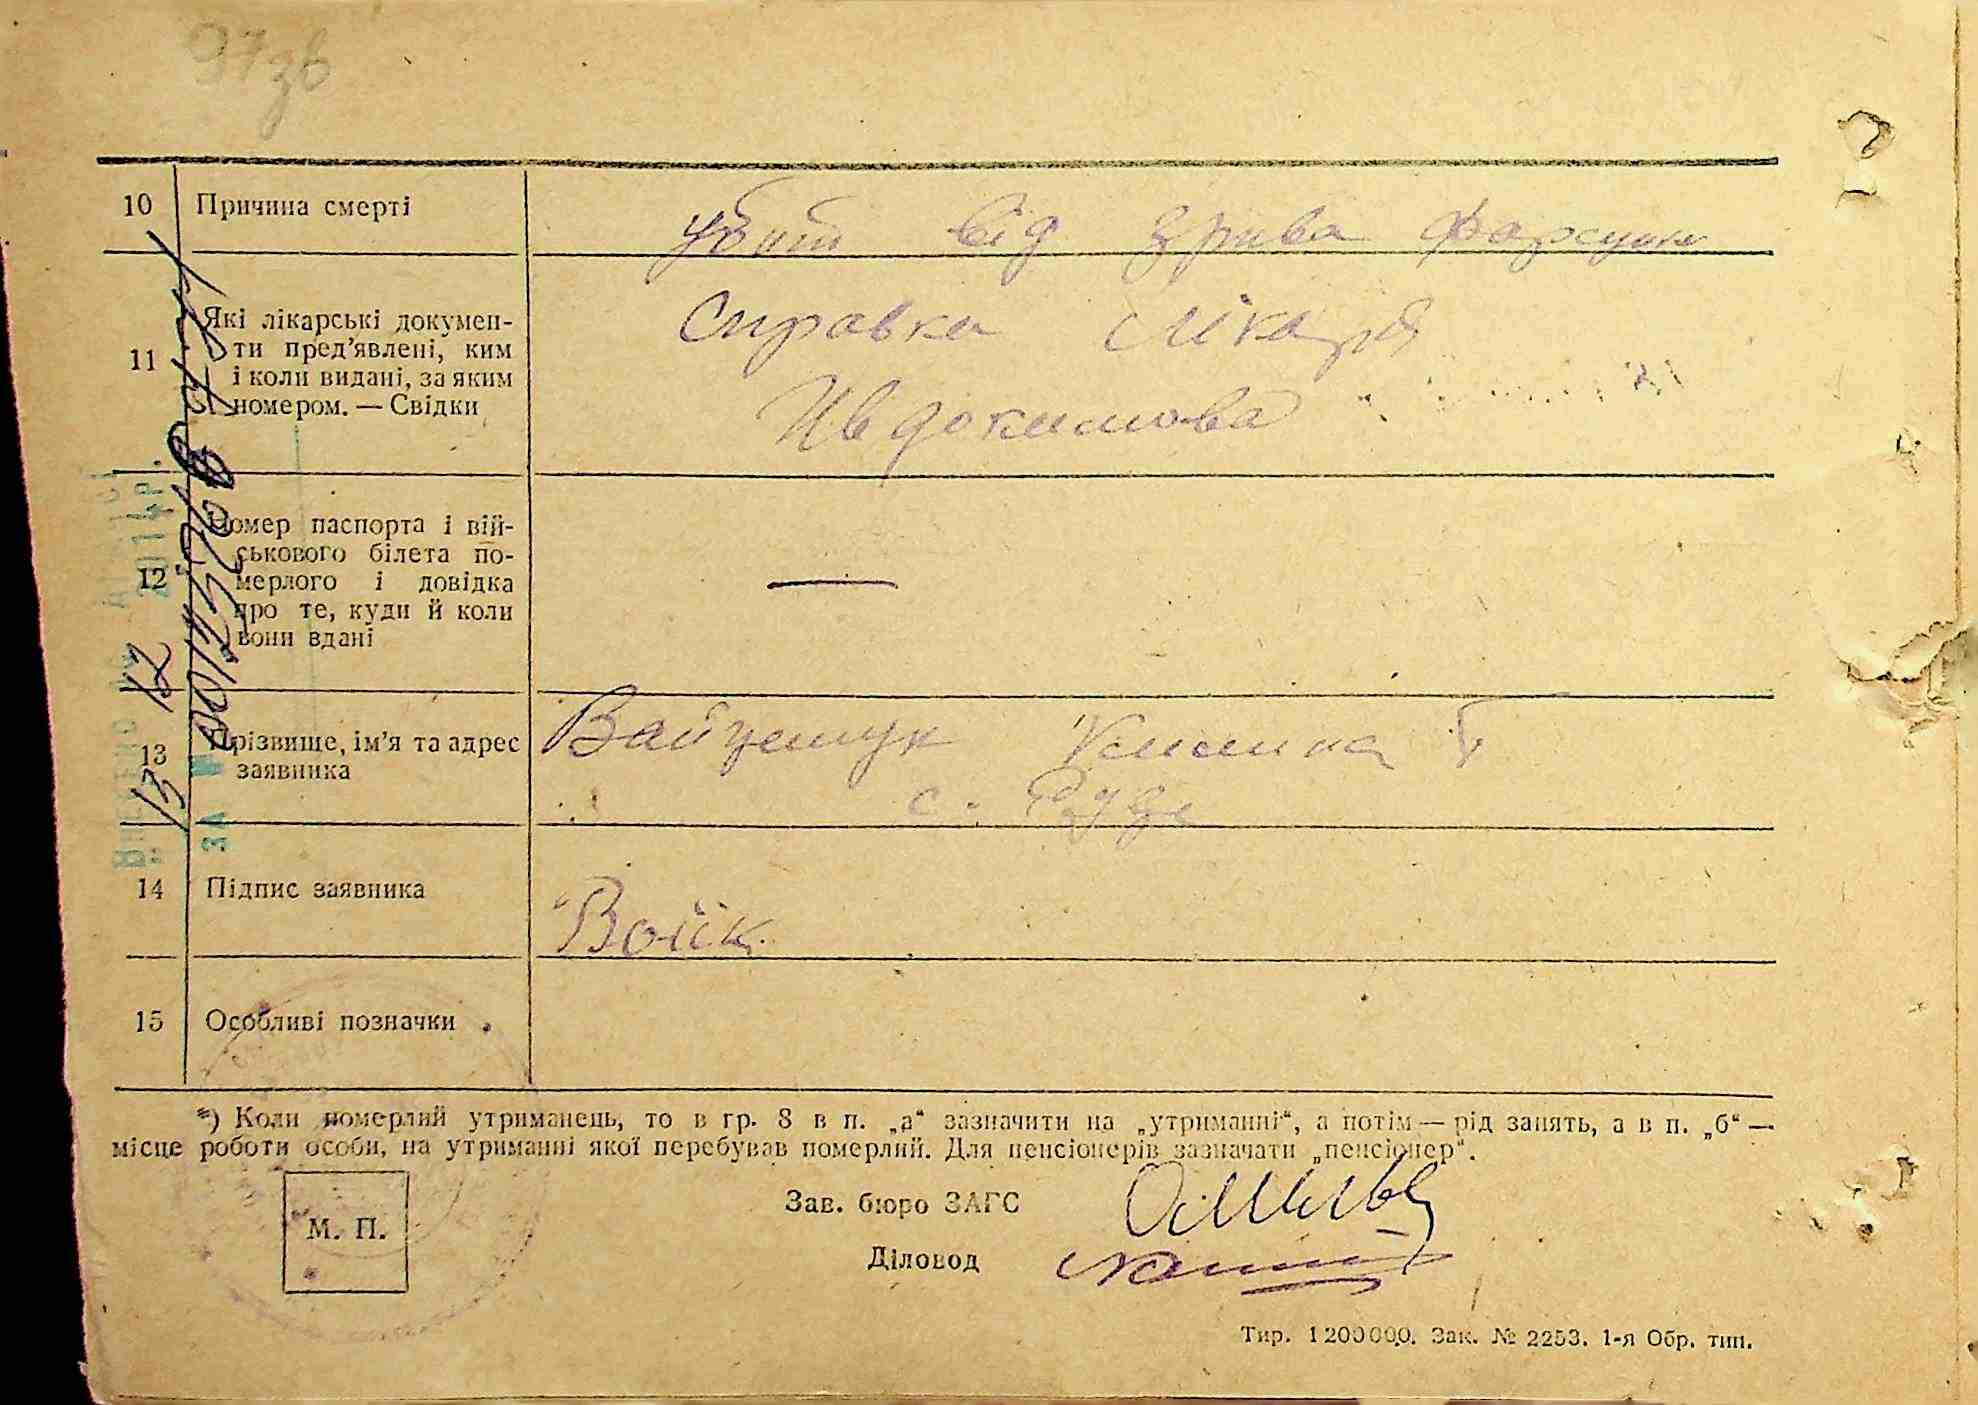 97зв
10 Причина смерті
убит від зрива форсунк
11 Які лікарські докумен-
ти пред’явлені, ким
і коли видані, за яким
номером. — Свідки
Справка лікаря
Ивдокимова
12 Номер паспорта і вій-
ськового білета по-
мерлого і довідка
про те, куди й коли
вони здані
—
13 Прізвище, ім’я та адрес
заявника
Войцешук
с.
14 Підпис заявника
Войк.
15 Особливі позначки
*) Коли померлий утриманець, то в гр. 8 в п. „а“ зазначити на „утриманні“, а потім — рід занять, а в п. „б“ —
місце роботи особи, на утриманні якої перебував померлий. Для пенсіонерів зазначати „пенсіонер“.
М. П.
Зав. бюро ЗАГС
Діловод
Тир. 1200000. Зак. № 2253. 1-я Обр. тип.